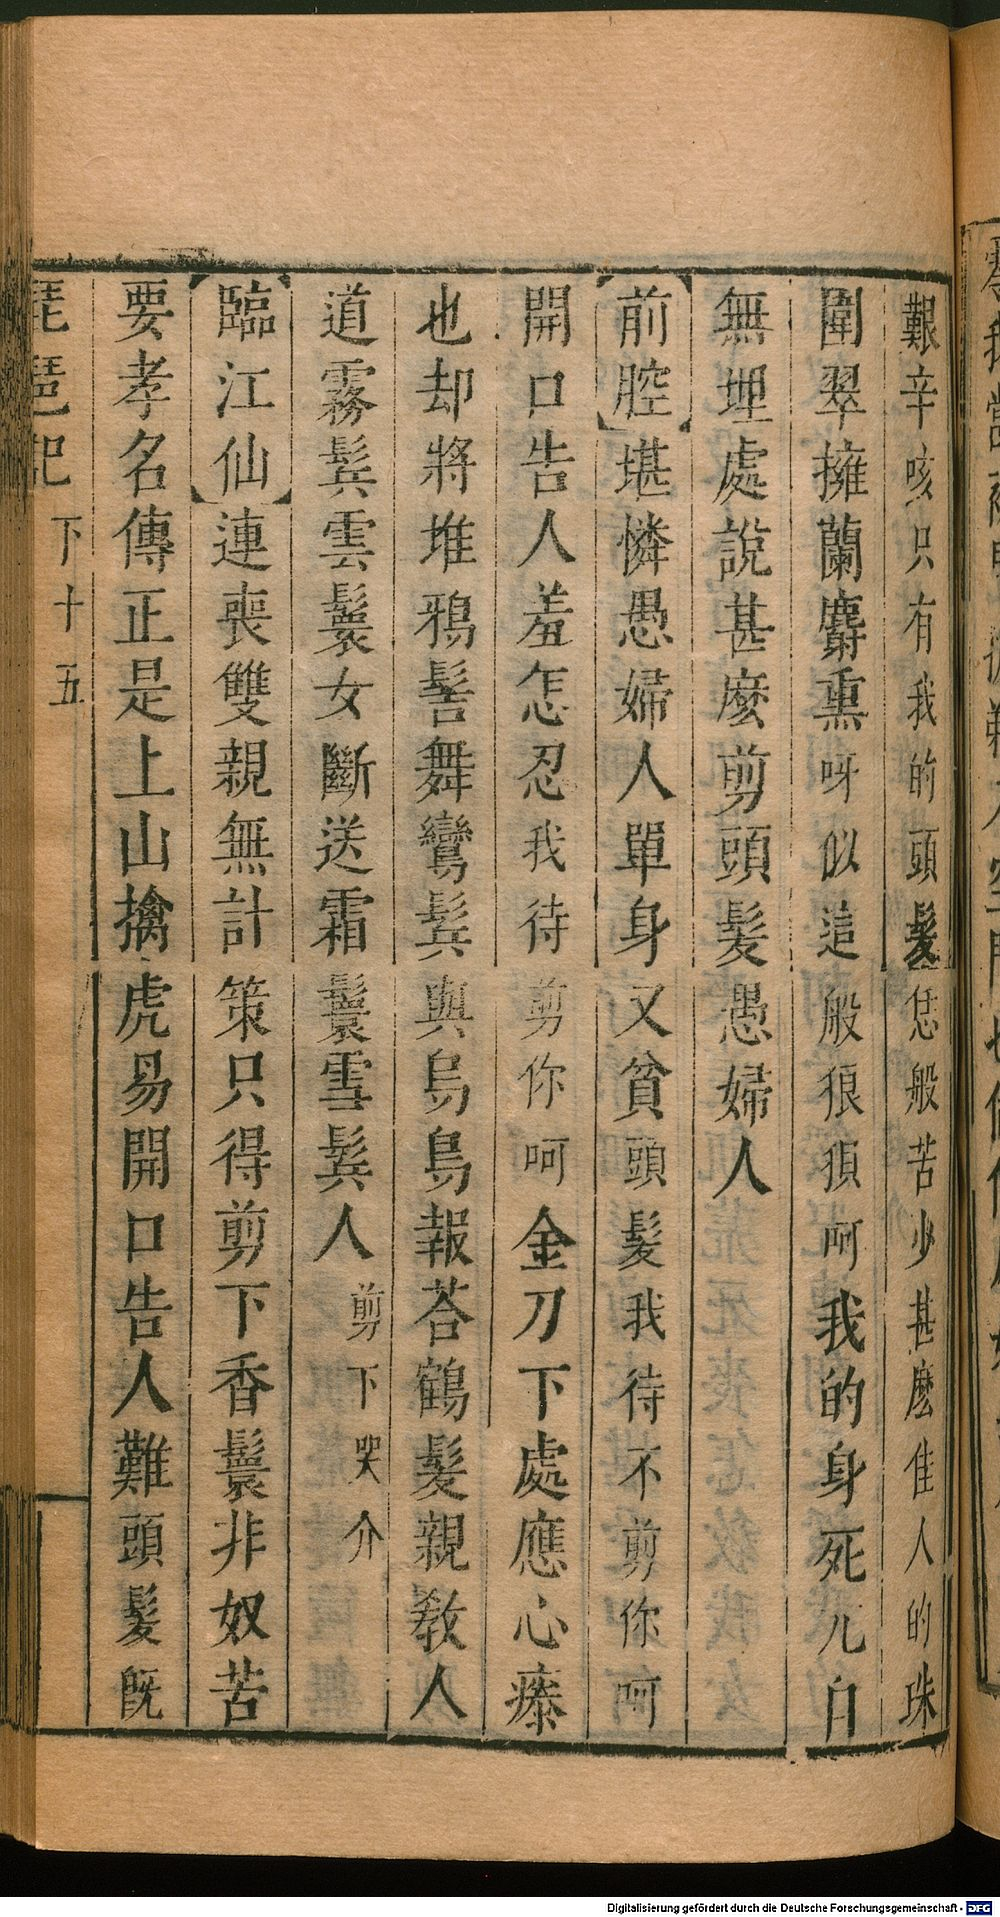 艱辛咳只有我的頭髮恁般苦少甚麽佳人的珠
圍翠擁蘭麝熏呀似這般狼狽呵我的身死兒自
無埋處說甚麽剪頭髮愚婦人
【前腔】堪憐愚婦人單身又貧頭髮我待不剪你呵
開口告人羞怎忍我待剪你呵金刀下處應心瘮
也却將堆鴉髻舞鸞鬂與烏鳥報荅鶴髮親敎人
道霧鬂雲鬟女斷送霜鬟雪鬂人剪下哭介
【臨江仙】連喪雙親無計策只得剪下香鬟非奴苦
要孝名傳正是上山擒虎易開口告人難頭髮旣
琵琶記 下十五
Digitalisierung gefördert durch die Deutsche Forschungsgemeinschaft - DFG